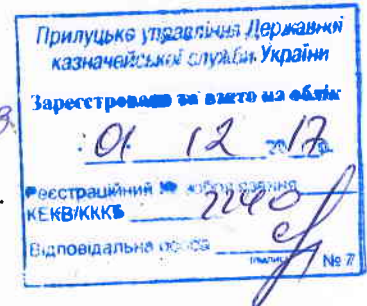 Прилуцьке управління Державної
казначейської служби України
Зареєстровано та взято на облік
01 12 2017
Реєстраційний № зобов'язання
КЕКВ/ККК 2240
Відповідальна особа
(підпис) № 7